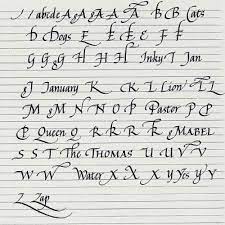 / / abcde A A A A B B Cats
D Dogs E E F F F
G G G H H H Inky I Jan
J January K K L Lion L
M M N N O P Pastor P P
P Queen Q R R R R MABEL
S S T The THOMAS U U V V
W W Water X X Y Yes y Y
Z Zap